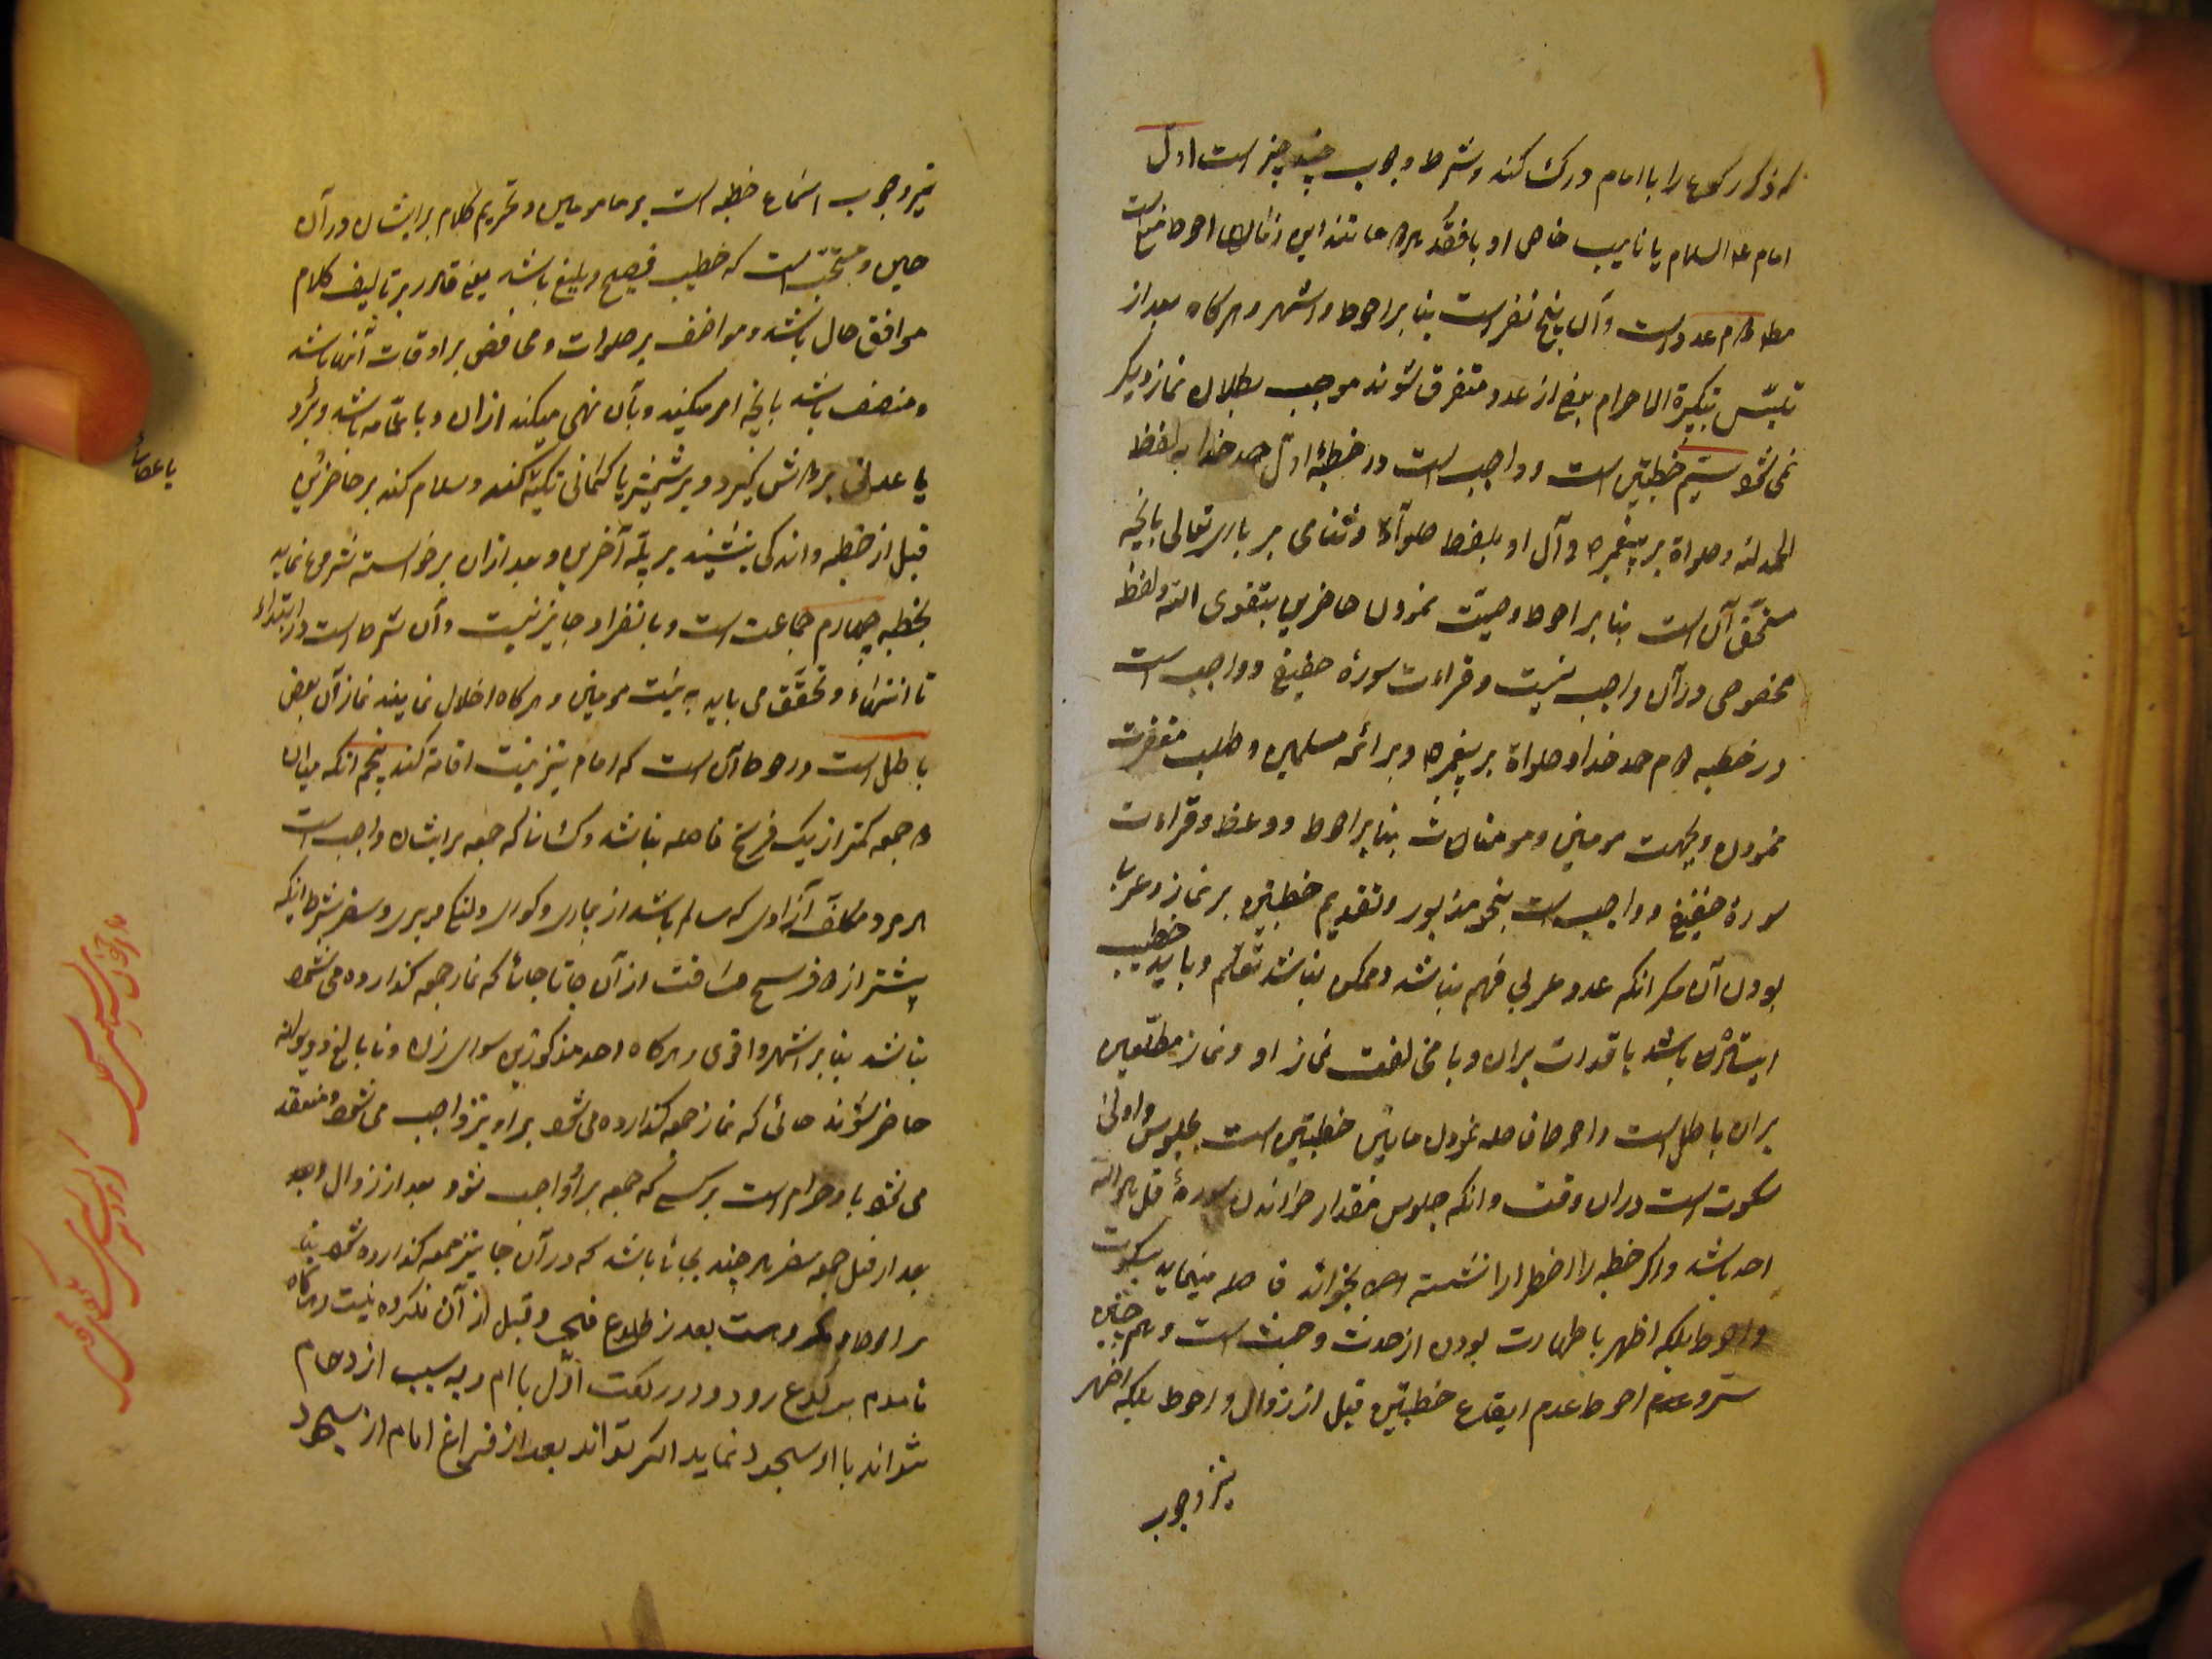 که ذکر رکوع را با امام درک کند و شرط وجوب چند چیز است اول
امام علیه السلام یا نایب خاص او با فقد هر دو مانند این زمان احوط منع است
عدد است و آن پنج نفر است بنا بر احوط و اشهر و هرگاه بعد از
تلبس بتکبیرة الاحرام بعضی از عدد متفرق شوند موجب بطلان نماز دیگر
نمی‌شود سیم خطبتین است و واجب است در خطبهٔ اول حمد خدا به لفظ
الحمد لله و صلواة بر پیغمبر و آل او بلفظ صلوة و ثنای بر باری تعالی بانچه
مستحق آن است بنا بر احوط وصیت نمودن حاضرین بتقوی الله و لفظ
مخصوصی در آن واجب نیست و قراءت سورهٔ خفیفه و واجب است
در خطبه دوم حمد خدا و صلواة بر پیغمبر و بر ائمه مسلمین و طلب مغفرت
نمودن بجهت مومنین و مومنات بنا بر احوط و وعظ و قراءت
سورة خفیفه و واجب است بنحو مزبور و تقدیم خطبتین بر نماز و عربی
بودن آن مگر انکه عدد عربی فهم نباشد و ممکن نباشد تعلم و باید خطیب
ایستاده باشد با قدرت بران و با مخالفت نماز او و نماز مطلعین
بران باطل است و احوط فاصله نمودن مابین خطبتین است بجلوس و اولی
سکوت است دران وقت و انکه جلوس مقدار خواندن سورهٔ قل هو الله
احد باشد و اگر خطبه را اضطرارا نشسته بخواند فاصله مینماید بسکوت
و احوط بلکه اظهر با طهارت بودن از حدث و خبث است و هم چنین
ستر و احوط عدم ایقاع خطبتین قبل از زوال و احوط بلکه اظهر
نیز وجوب
نیز وجوب استماع خطبه است بر مامومین و تحریم کلام بر ایشان در آن
حین و مستحب است که خطیب فصیح و بلیغ باشد یعنی قادر بر تالیف کلام
موافق حال باشد و مواظب بر صلوات و محافظ بر اوقات آنها باشد
و متصف باشد بانچه امر میکند و بآن نهی میکند ازان و با عمامه باشد و برد
یا عدنی بر دوش گیرد و بر شمشیر یا کمانی تکیه کند و سلام کند بر حاضرین
یا عصائی
قبل از خطبه و اندکی بنشیند بر پله آخرین و بعد ازان برخواسته شروع نماید
بخطبه چهارم جماعت است و بانفراد جایز نیست و آن شرط است در ابتداء
تا انتهاء و تحقق می یابد به نیت مومنین و هرگاه اخلال نمایند نماز آن بعض
باطل است و احوط آن است که امام نیز نیت اقامة کند پنجم انکه میان
دو جمعه کمتر از یک فرسخ فاصله نباشد و کسانی که جمعه بر ایشان واجب است
هر مرد مکلف آزادی که سالم باشد از بیماری و کوری و لنگی و پیری و سفر بشرط انکه
بیشتر از دو فرسخ مسافت از آن جا تا جائی که نماز جمعه گذارده می‌شود
نباشد بنا بر اشهر و اقوی و هرگاه احد مذکورین سوای زن و نابالغ و دیوانه
حاضر شوند جائی که نماز جمعه گذارده می‌شود بر او نیز واجب می‌شود و منعقد
می‌شود با و حرام است بر کسی که جمعه بر او واجب شود بعد از زوال
بعد از قبل جمعه سفر هر چند بجائی باشد که در آن جا نیز جمعه گذارده شود بنا
بر احوط و مکروهست بعد از طلوع فجر و قبل از آن مکروه نیست و هرگاه
ماموم برکوع رود و در رکعت اول با امام و به سبب ازدحام
نتواند با او سجود نماید اگر تواند بعد از فراغ امام از سجود